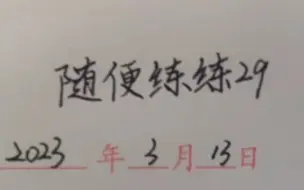 随便练练29
2023年3月13日